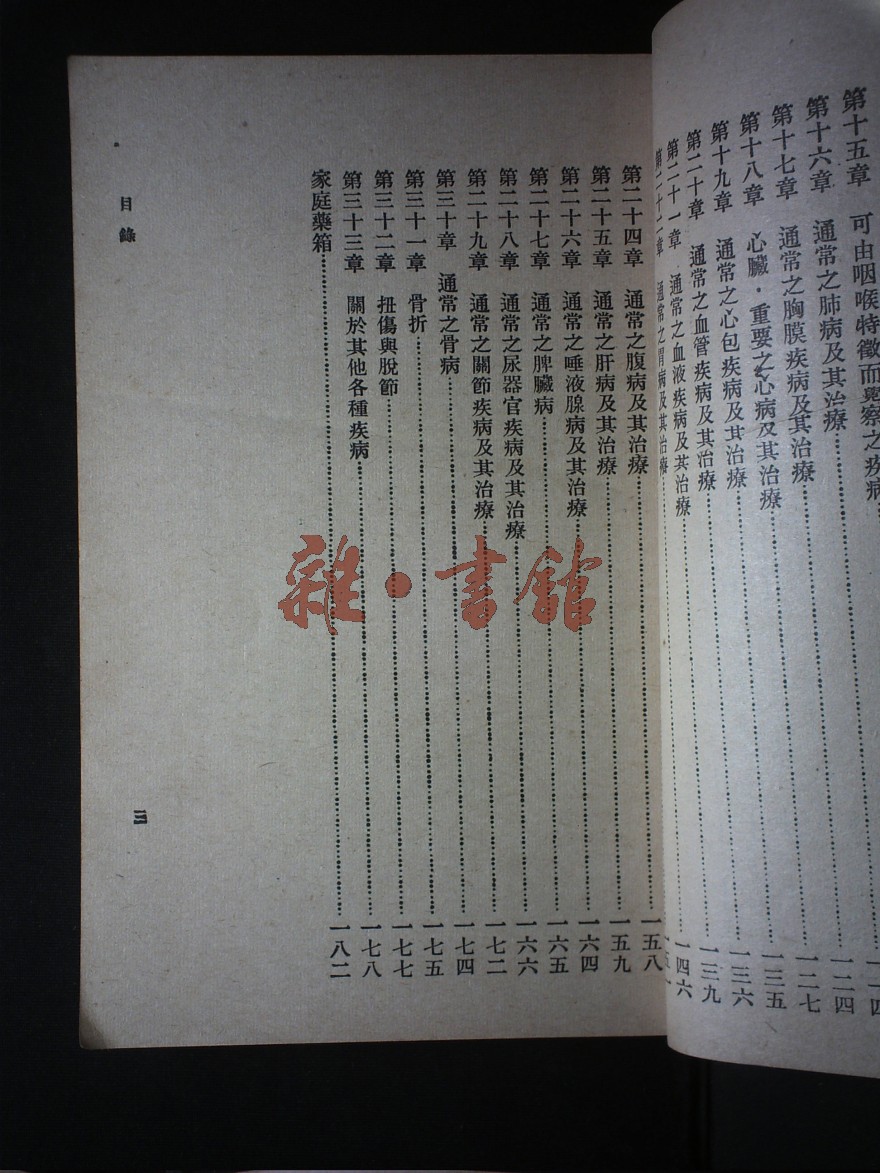 第十五章 可由咽喉特徵而覺察之疾病
第十六章 通常之肺病及其治療……一二四
第十七章 通常之胸膜疾病及其治療……一二七
第十八章 心臟·重要之心病及其治療……一三五
第十九章 通常之心包疾病及其治療……一三六
第二十章 通常之血管疾病及其治療……一三九
第二十一章 通常之血液疾病及其治療……一四六
第二十二章 通常之胃病及其治療……
第二十四章 通常之腹病及其治療……一五八
第二十五章 通常之肝病及其治療……一五九
第二十六章 通常之唾液腺病及其治療……一六四
第二十七章 通常之脾臟病……一六五
第二十八章 通常之尿器官疾病及其治療……一六六
第二十九章 通常之關節疾病及其治療……一七二
第三十章 通常之骨病……一七四
第三十一章 骨折……一七五
第三十二章 扭傷與脫節……一七七
第三十三章 關於其他各種疾病……一七八
家庭藥箱……一八二
目錄
三
雜·書館